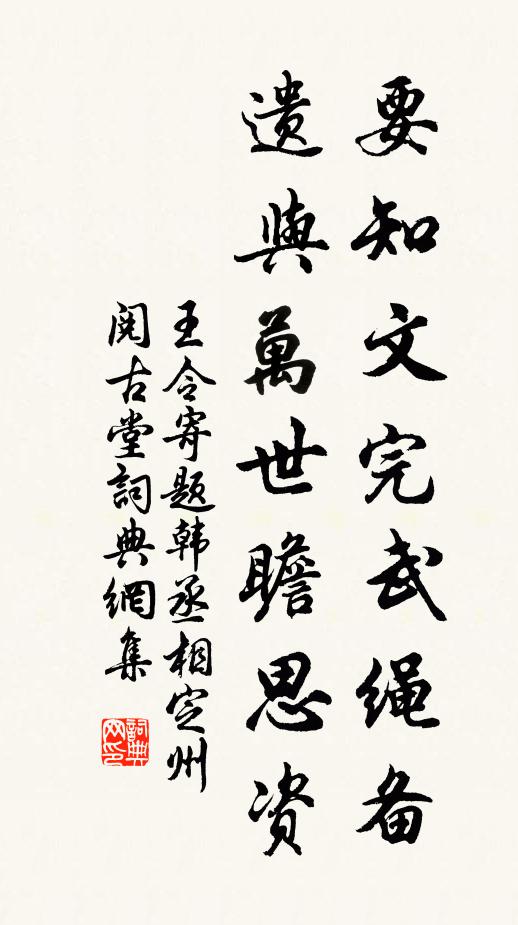 要知文完武绳备
遗与萬世瞻思资
王令寄题韩丞相定州
阅古堂詞典網集
詞典网印